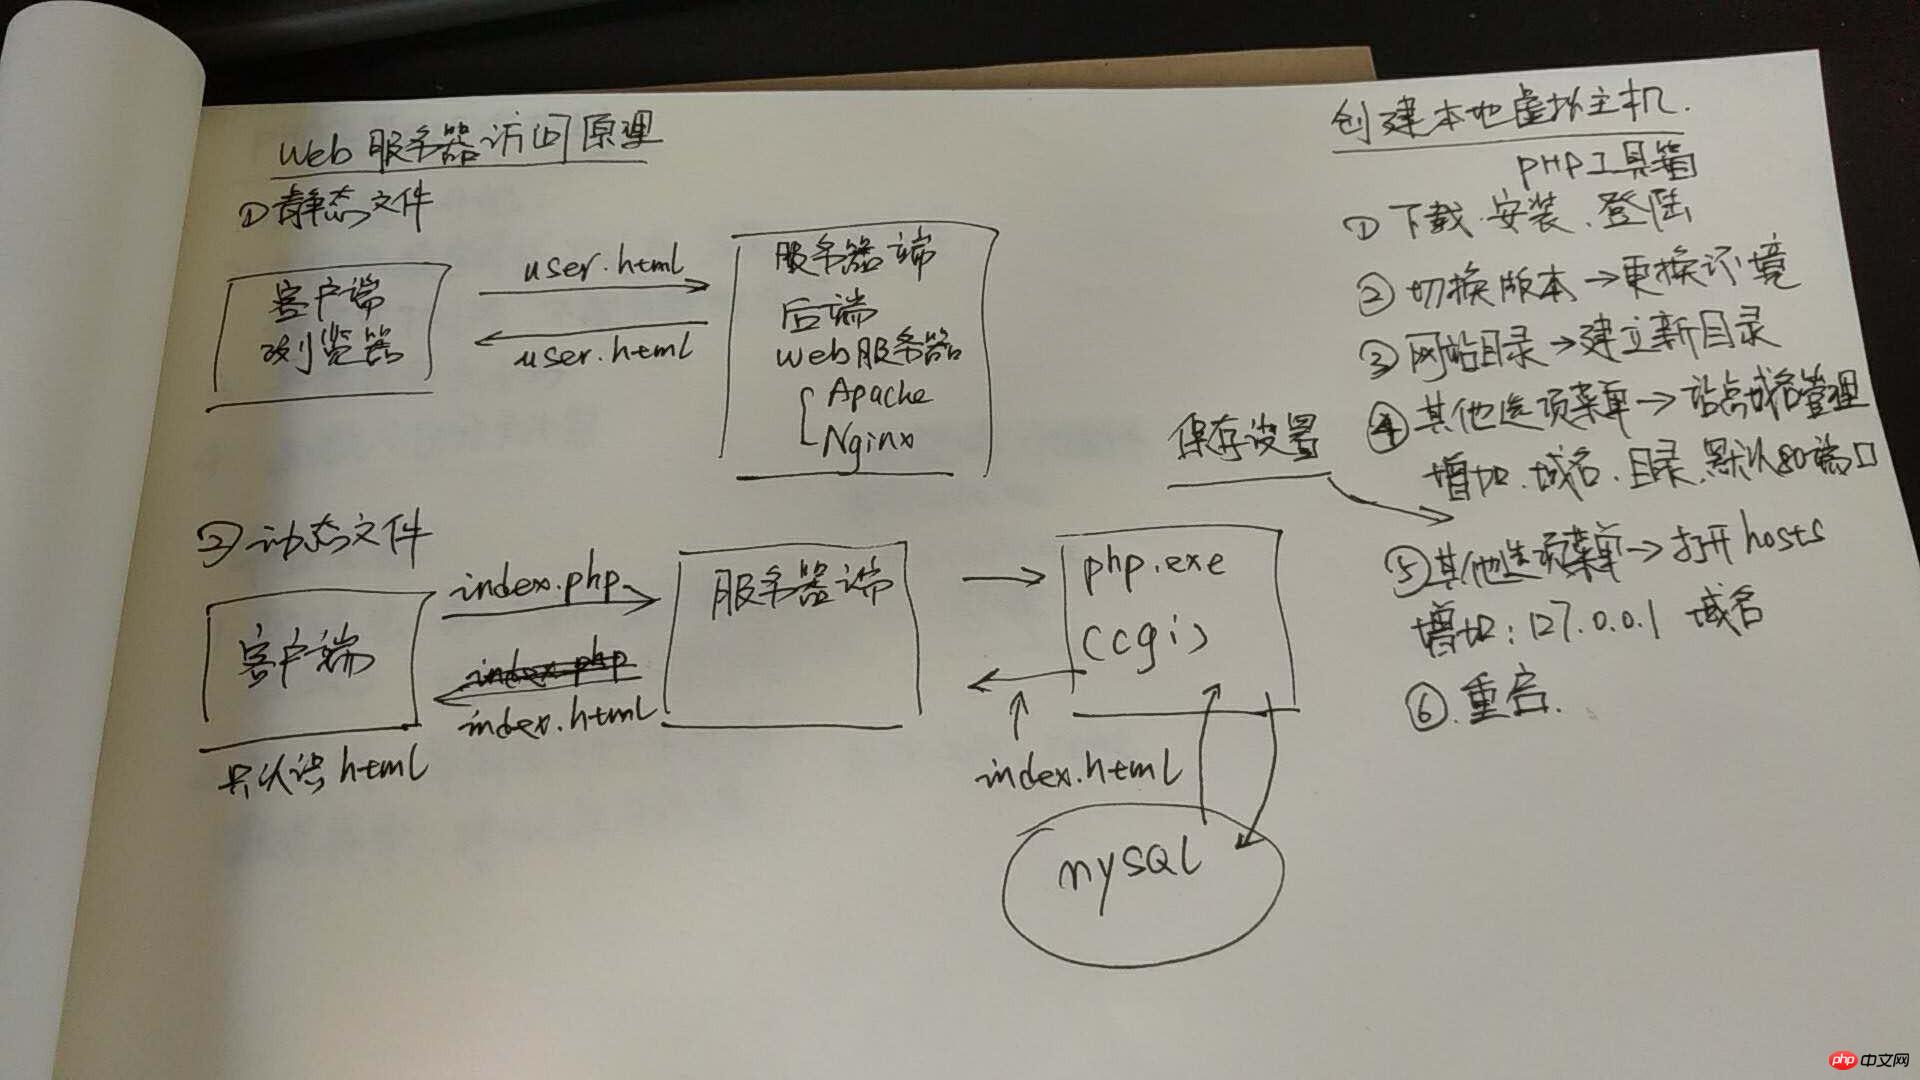 Web服务器访问原理
①静态文件
客户端
浏览器
user.html
user.html
服务器端
后端
web服务器
Apache
Nginx
②动态文件
客户端
只认识html
index.php
index.php
index.html
服务器端
php.exe
(cgi)
index.html
mysql
创建本地虚拟主机.
PHP工具箱
①下载.安装.登陆
②切换版本→更换环境
③网站目录→建立新目录
④其他选项菜单→站点域名管理
增加.域名.目录.默认80端口
保存设置
⑤其他选项菜单→打开hosts
增加:127.0.0.1 域名
⑥.重启.
php中文网